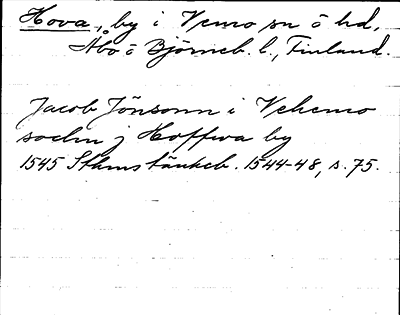 Hova, by i Vemo sn o hd,
Åbo o Björneb. l., Finland.
Jacob Jönsonn i Vehemo
sochn j Hoffwa by
1545 Sthms tänkeb. 1544-48, s. 75.